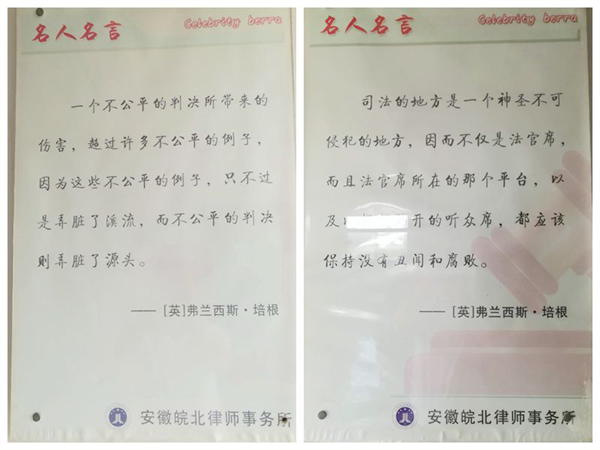 名人名言
Celebrity berra
一个不公平的判决所带来的
伤害，超过许多不公平的例子，
因为这些不公平的例子，只不过
是弄脏了溪流，而不公平的判决
则弄脏了源头。
——[英]弗兰西斯·培根
安徽皖北律师事务所
名人名言
Celebrity berra
司法的地方是一个神圣不可
侵犯的地方，因而不仅是法官席，
而且法官席所在的那个平台，以
及 开的听众席，都应该
保持没有丑闻和腐败。
——[英]弗兰西斯·培根
安徽皖北律师事务所